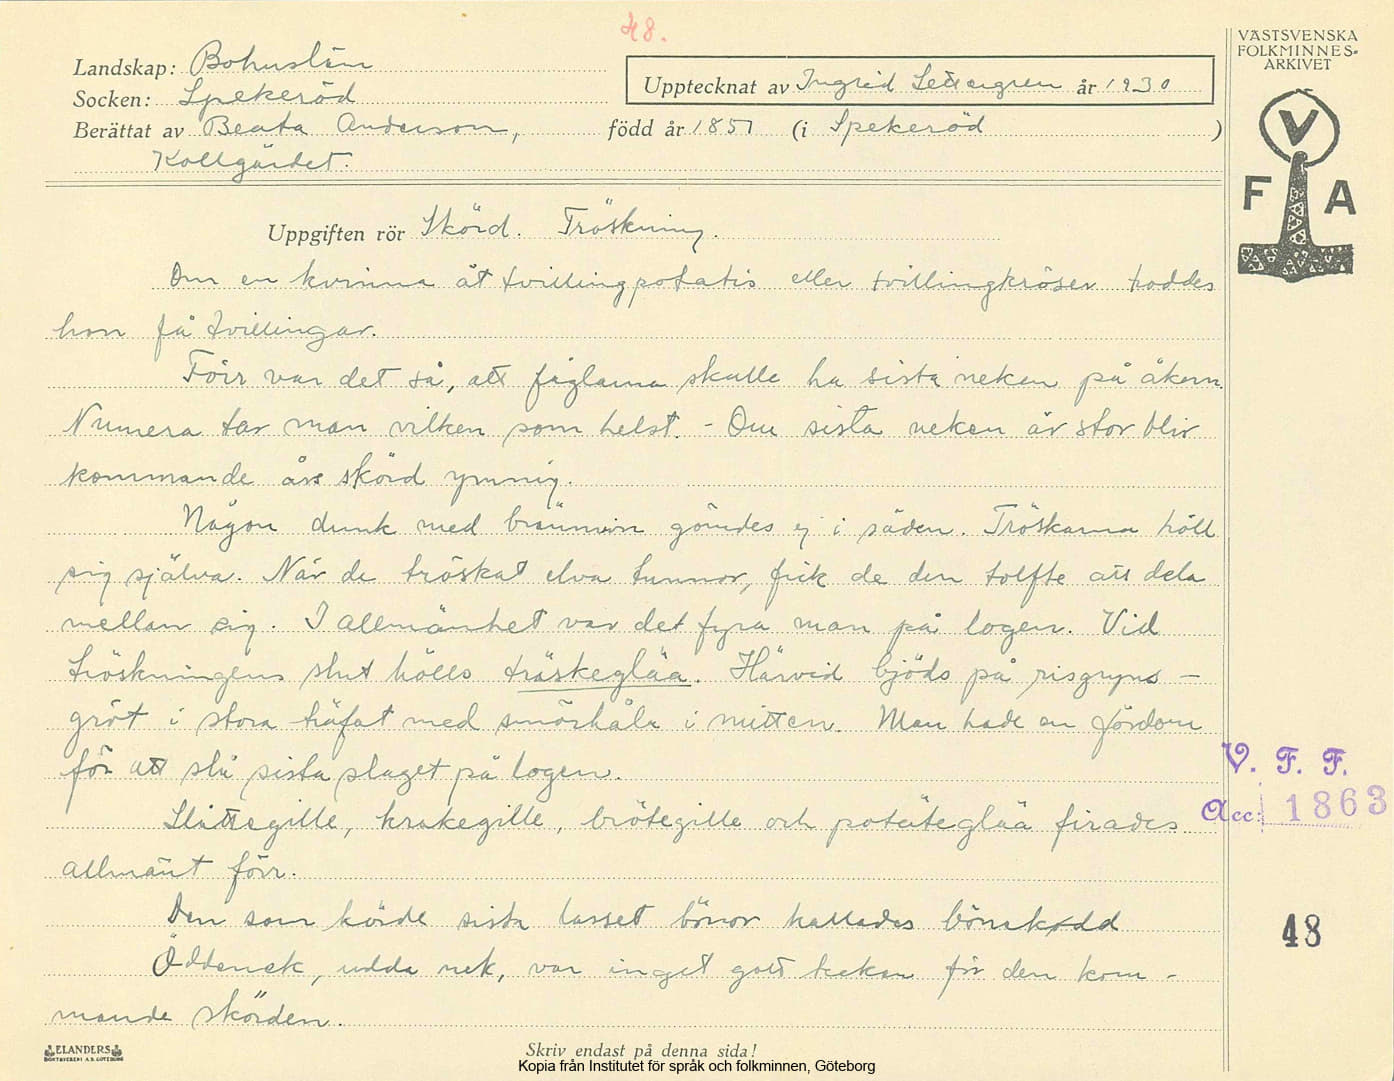 48.
VÄSTSVENSKA
FOLKMINNES-
ARKIVET
Landskap: Bohuslän
Upptecknat av Ingrid Settergren år 1930
Socken: Spekeröd
Berättat av Beata Anderson, född år 1857 (i Spekeröd )
Kollgärdet.
V
F A
Uppgiften rör Skörd. Tröskning.
Om en kvinna åt tvillingpotatis eller tvillingkröser troddes
hon få tvillingar.
Förr var det så, att fåglarna skulle ha sista neken på åkern.
Numera tar man vilken som helst. - Om sista neken är stor blir
kommande års skörd ymnig.
Någon dunk med brännvin gömdes ej i säden. Tröskarna höll
sig själva. När de tröskat elva tunnor, fick de den tolfte att dela
mellan sig. I allmänhet var det fyra man på logen. Vid
tröskningens slut hölls träskegläa. Härvid bjöds på risgryns-
gröt i stora träfat med smörhåla i mitten. Man hade en fördom
för att slå sista slaget på logen.
Slåttegille, krakegille, brötegille och potätegläa firades
allmänt förr.
Den som körde sista lasset bönor kallades bönekodd
Öddenek, udda nek, var inget gott tecken för den kom-
mande skörden.
V. F. F.
Acc: 1863
48
ELANDERS
BOKTRYCKERI A.B. GÖTEBORG
Skriv endast på denna sida!
Kopia från Institutet för språk och folkminnen, Göteborg